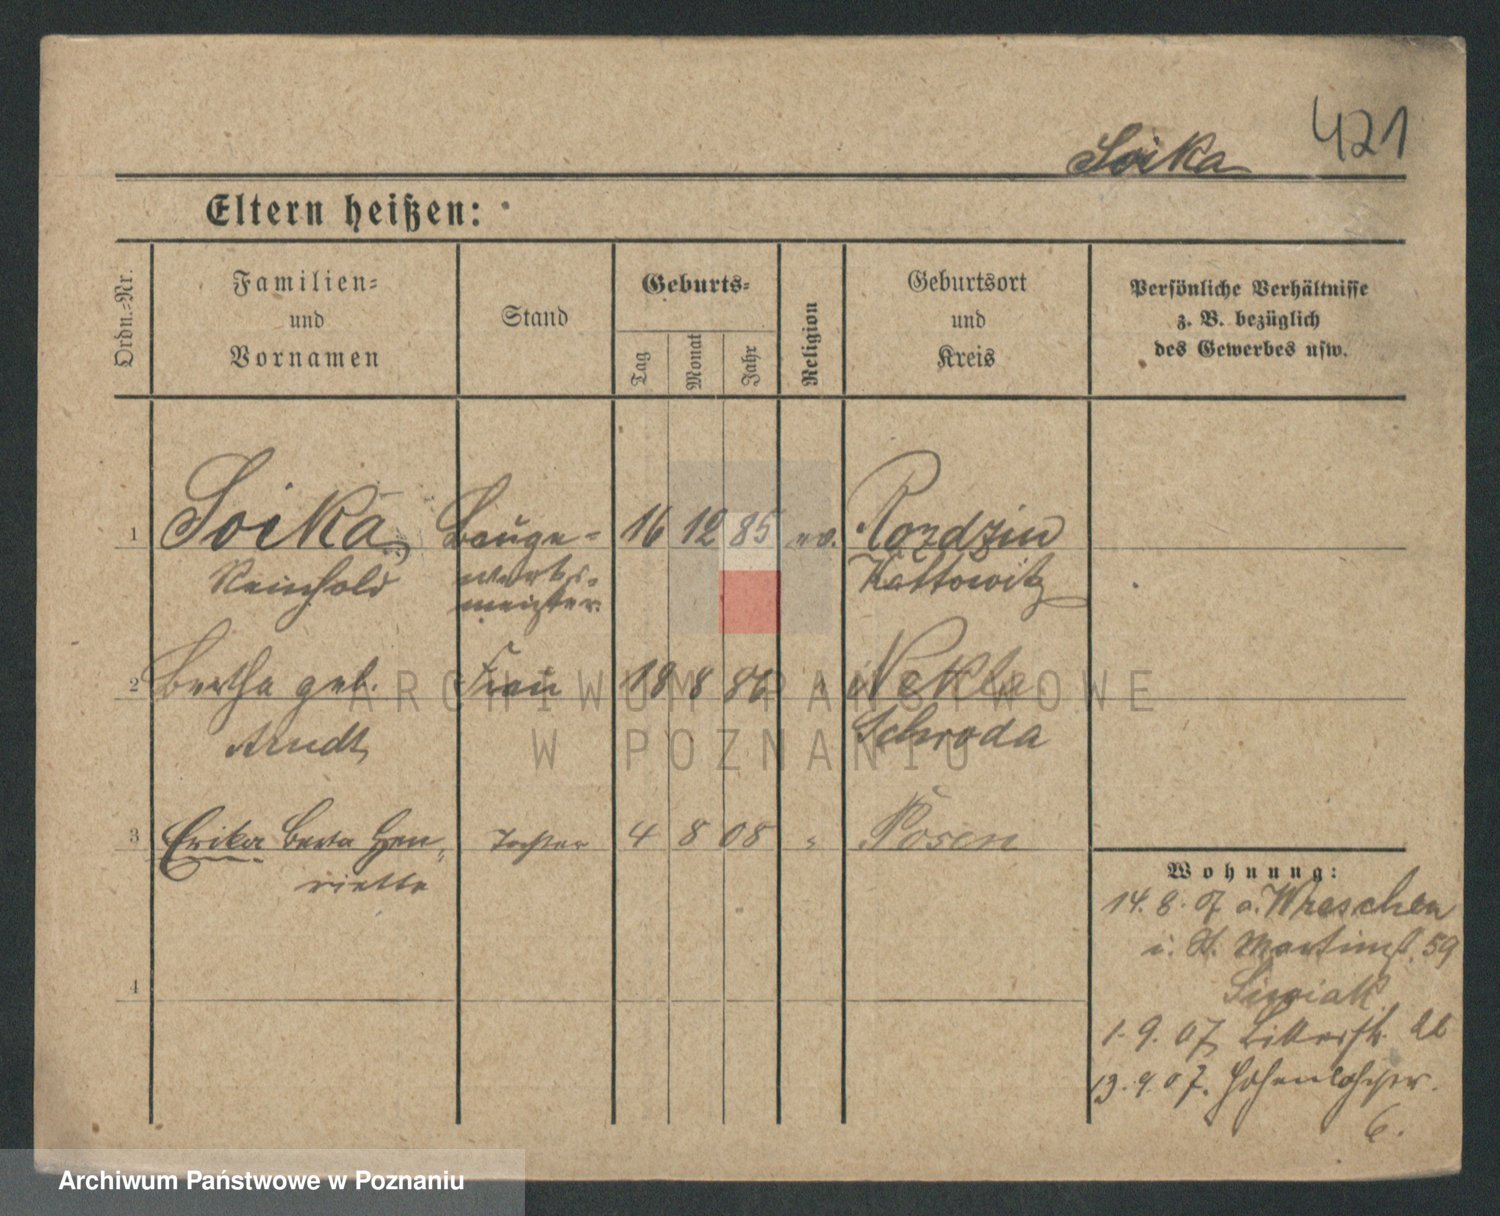 421
Soika
Eltern heißen:
Ordn.-Nr.
Familien-
und
Vornamen
Stand
Geburts-
Tag
Monat
Jahr
Religion
Geburtsort
und
Kreis
Persönliche Verhältnisse
z. B. bezüglich
des Gewerbes usw.
1 Soika, Bauge- 16 12 85 ev. Rozdzin
Reinhold werks- Kattowitz
meister
2 Bertha geb. Frau 18 8 86 " Nekla
Arndt Schroda
3 Erika Berta Hen- Tochter 4 8 08 " Posen
riette
4
Wohnung:
14. 8. 07 a. Wreschen
i. St. Martinst. 59
1. 9. 07 Ritterstr.
13. 9. 07. Hohenlohestr.
6.
ARCHIWUM PAŃSTWOWE
W POZNANIU
Archiwum Państwowe w Poznaniu